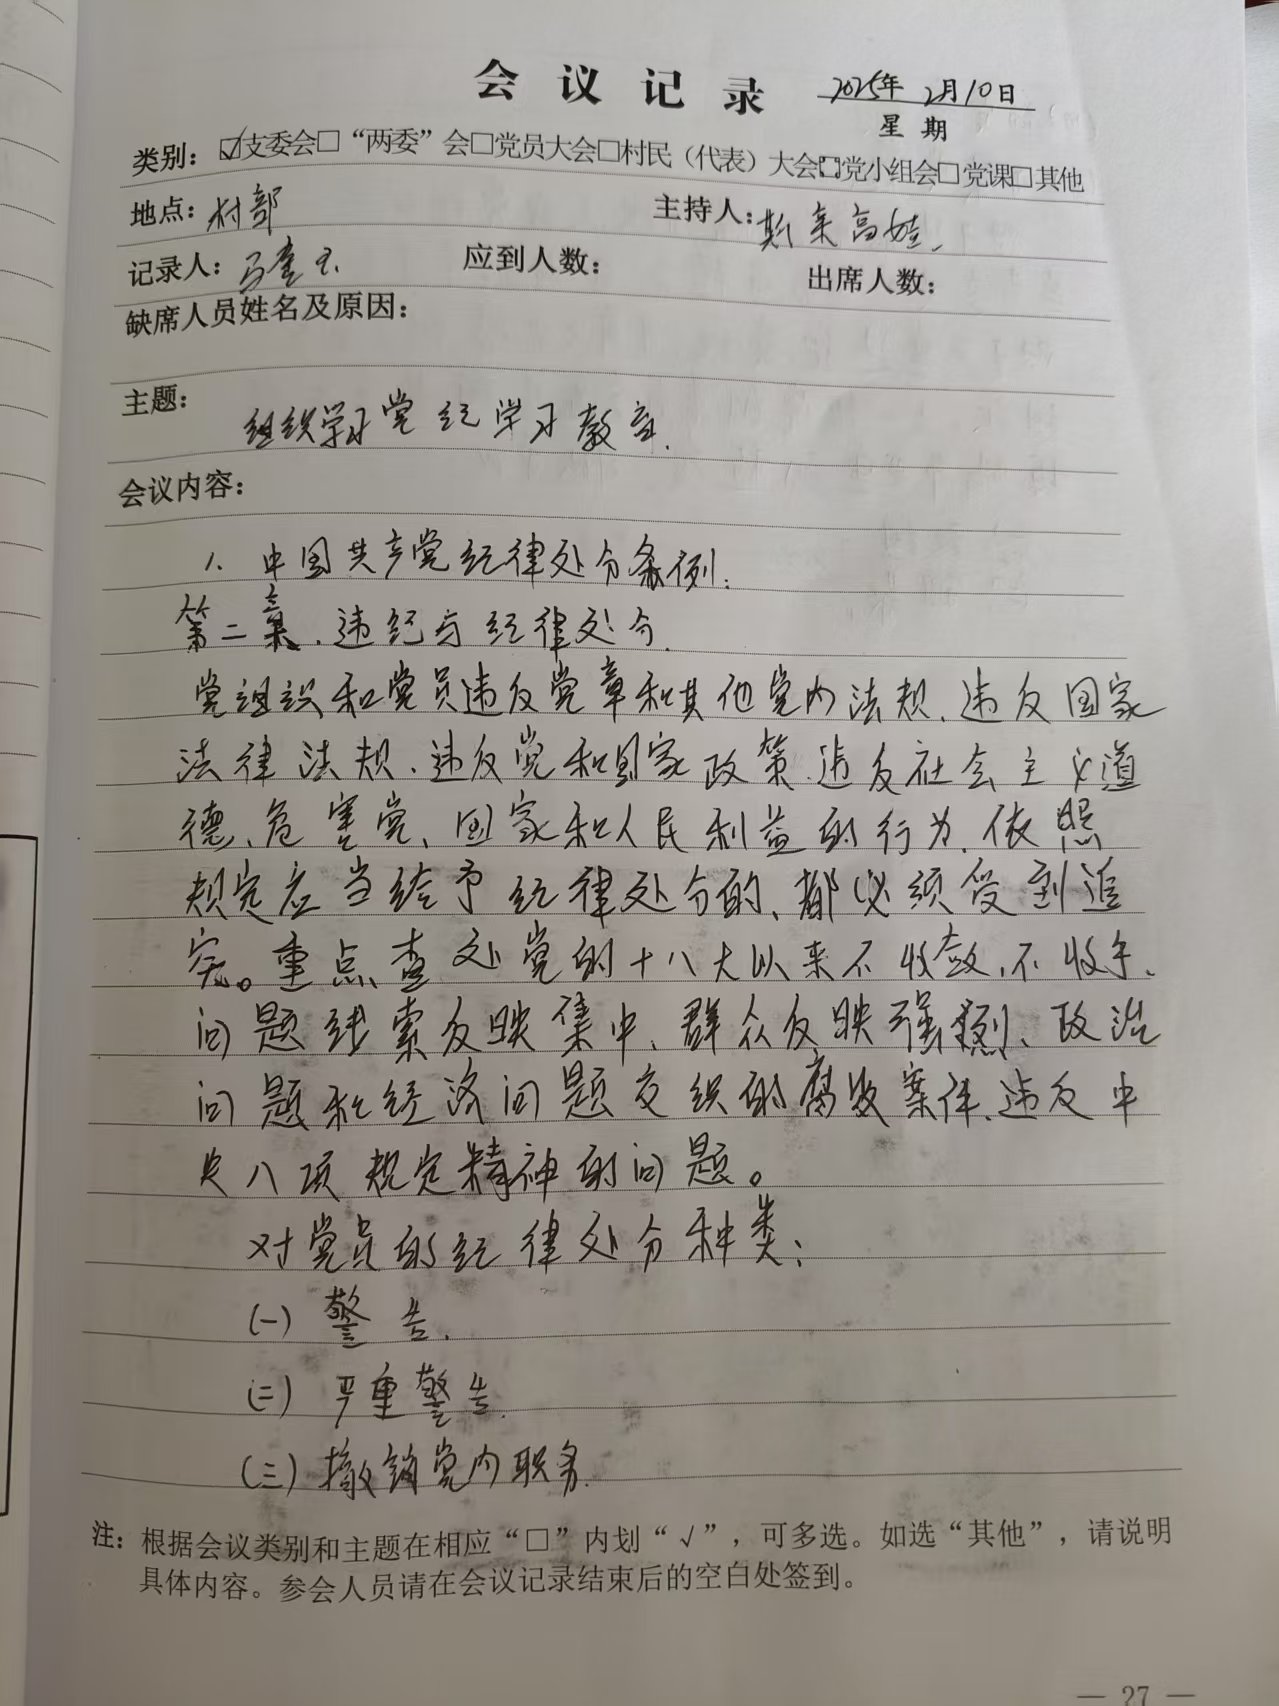 会议记录
2025年2月10日
星期
类别：☑支委会□“两委”会□党员大会□村民（代表）大会□党小组会□党课□其他
地点：村部 主持人：斯来高娃
记录人：马 应到人数： 出席人数：
缺席人员姓名及原因：
主题：
组织学习党纪学习教育.
会议内容：
1. 中国共产党纪律处分条例：
第二章.违纪与纪律处分.
党组织和党员违反党章和其他党内法规、违反国家
法律法规、违反党和国家政策、违反社会主义道
德、危害党、国家和人民利益的行为、依照
规定应当给予纪律处分的、都必须受到追
究。重点查处党的十八大以来不收敛、不收手、
问题线索反映集中、群众反映强烈、政治
问题和经济问题交织的腐败案件、违反中
央八项规定精神的问题。
对党员的纪律处分种类：
(一) 警告.
(二) 严重警告.
(三) 撤销党内职务.
注：根据会议类别和主题在相应“□”内划“√”，可多选。如选“其他”，请说明
具体内容。参会人员请在会议记录结束后的空白处签到。
— 27 —